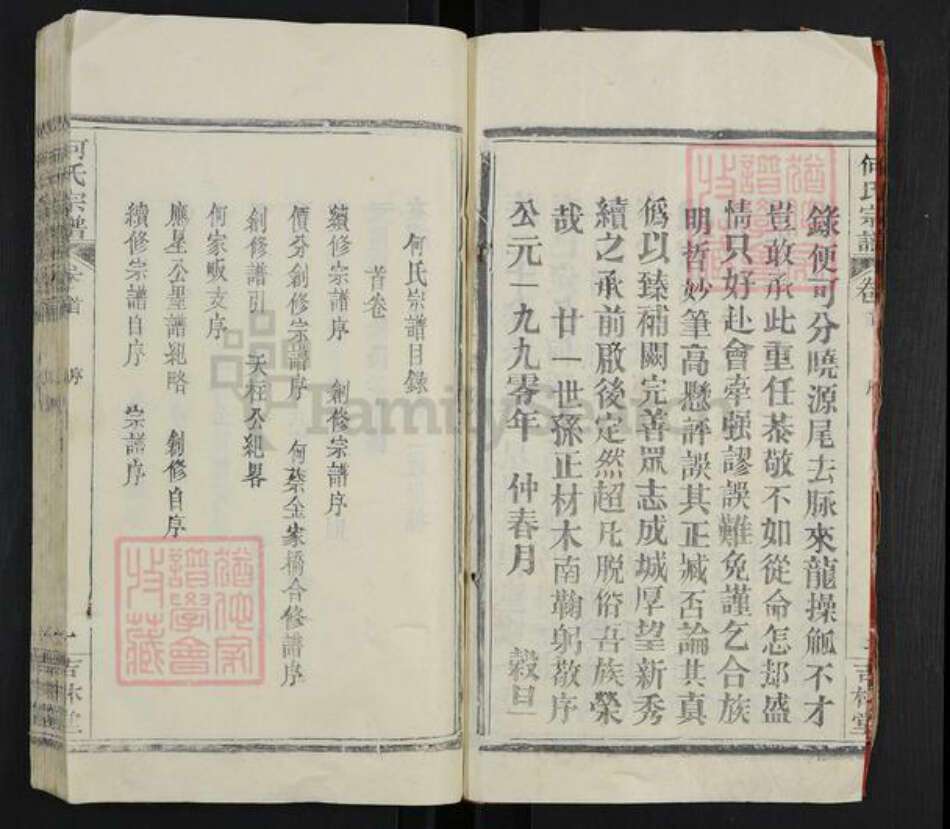 何氏宗譜
卷首
序
吉林堂
錄便可分曉源尾去脉來龍操觚不才
豈敢承此重任恭敬不如從命怎却盛
情只好赴會牽强謬誤難免謹乞合族
明哲妙筆高懸評誤其正臧否論其真
僞以臻補闕完善眾志成城厚望新秀
續之承前啟後定然超凡脫俗吾族榮
哉 廿一世孫正材木南鞠躬敬序
公元一九九零年 仲春月 穀旦
何氏宗譜目錄
首卷
續修宗譜序 創修宗譜序
價分創修宗譜序 何蔡金家橋合修譜序
創修譜引 天柱公紀畧
何家畈支序
應星公聖譜紀略 創修自序
續修宗譜自序 宗譜序
何氏宗譜
卷首
序
吉林堂
猶他家譜學會收藏
猶他家譜學會收藏
FamilySearch